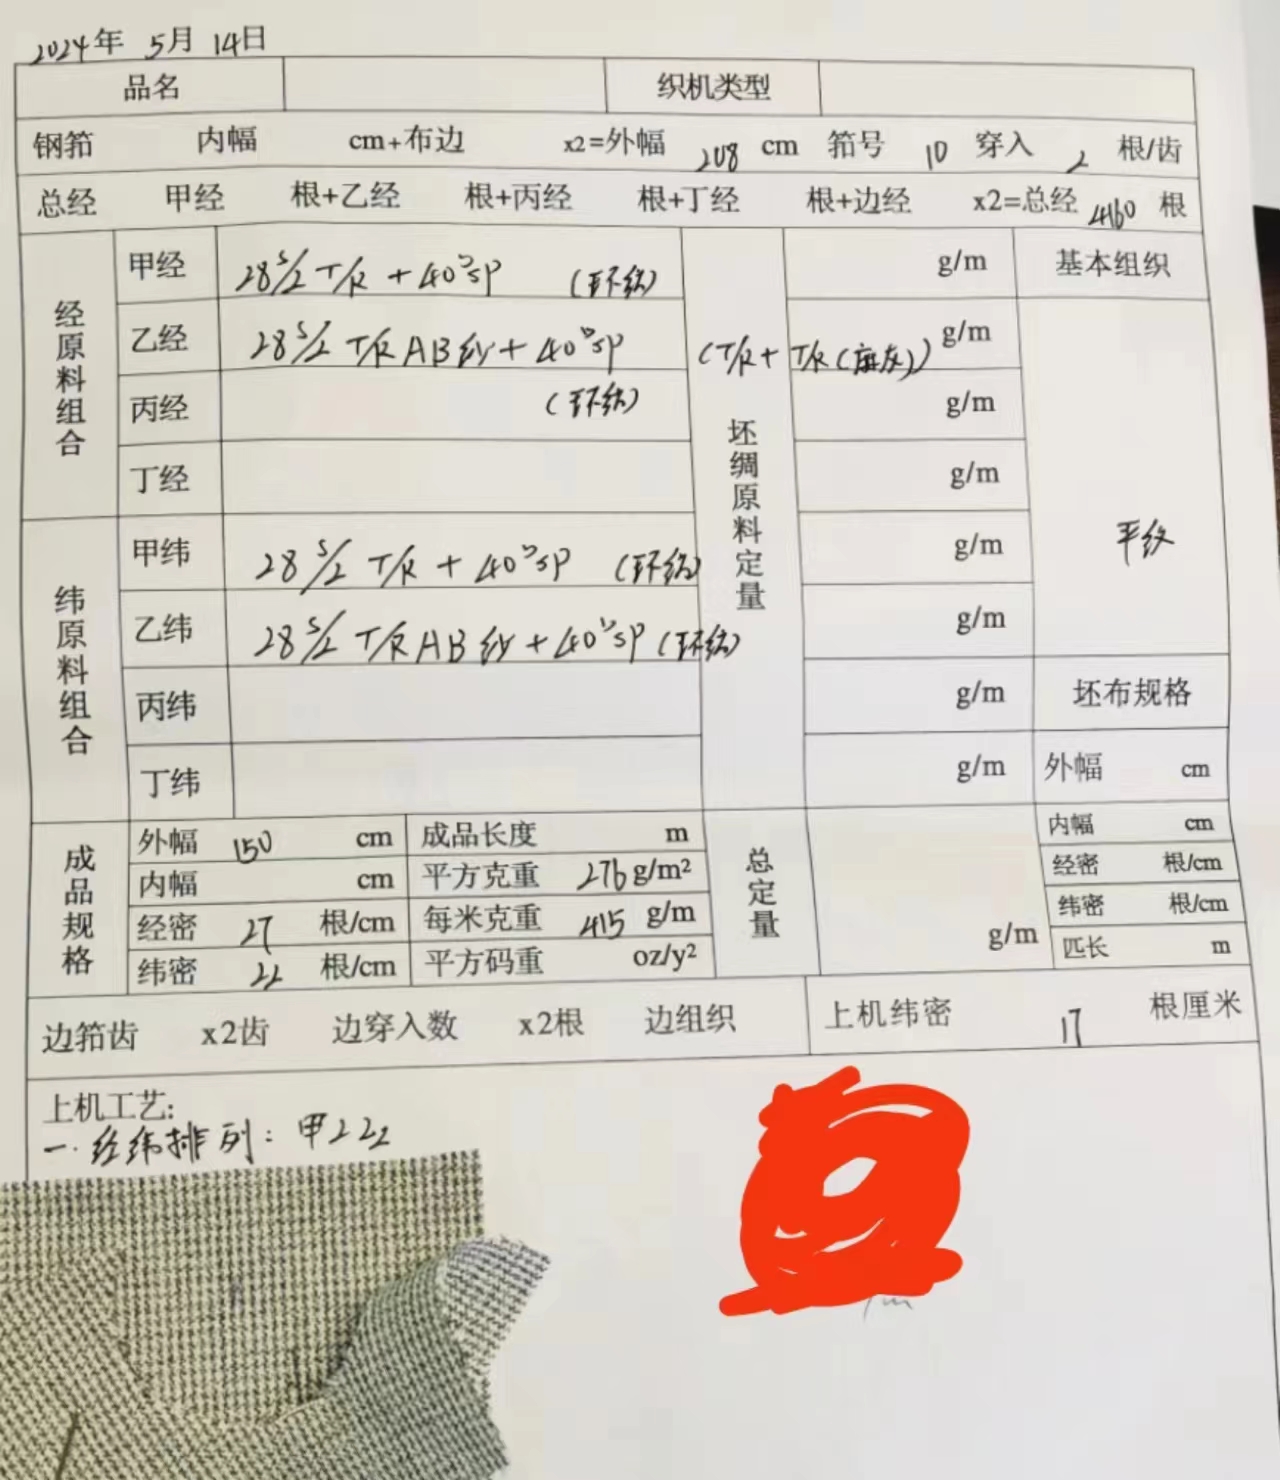 2024年 5月 14日
品名 织机类型
钢筘 内幅 cm+布边 x2=外幅 208 cm 筘号 10 穿入 2 根/齿
总经 甲经 根+乙经 根+丙经 根+丁经 根+边经 x2=总经 4160 根
经原料组合
甲经 28S/2 T/R + 40D SP (环纺)
乙经 28S/2 T/R AB纱 + 40D SP
丙经 (环纺)
丁经
纬原料组合
甲纬 28S/2 T/R + 40D SP (环纺)
乙纬 28S/2 T/R AB纱 + 40D SP (环纺)
丙纬
丁纬
(T/R + T/R(麻灰))
坯绸原料定量
g/m
g/m
g/m
g/m
g/m
g/m
g/m
g/m
基本组织
平纹
坯布规格
外幅 cm
内幅 cm
经密 根/cm
纬密 根/cm
匹长 m
成品规格
外幅 150 cm 成品长度 m
内幅 cm 平方克重 276 g/m²
经密 27 根/cm 每米克重 415 g/m
纬密 22 根/cm 平方码重 oz/y²
总定量 g/m
边筘齿 x2齿 边穿入数 x2根 边组织 上机纬密 17 根厘米
上机工艺:
一.经纬排列: 甲2乙2